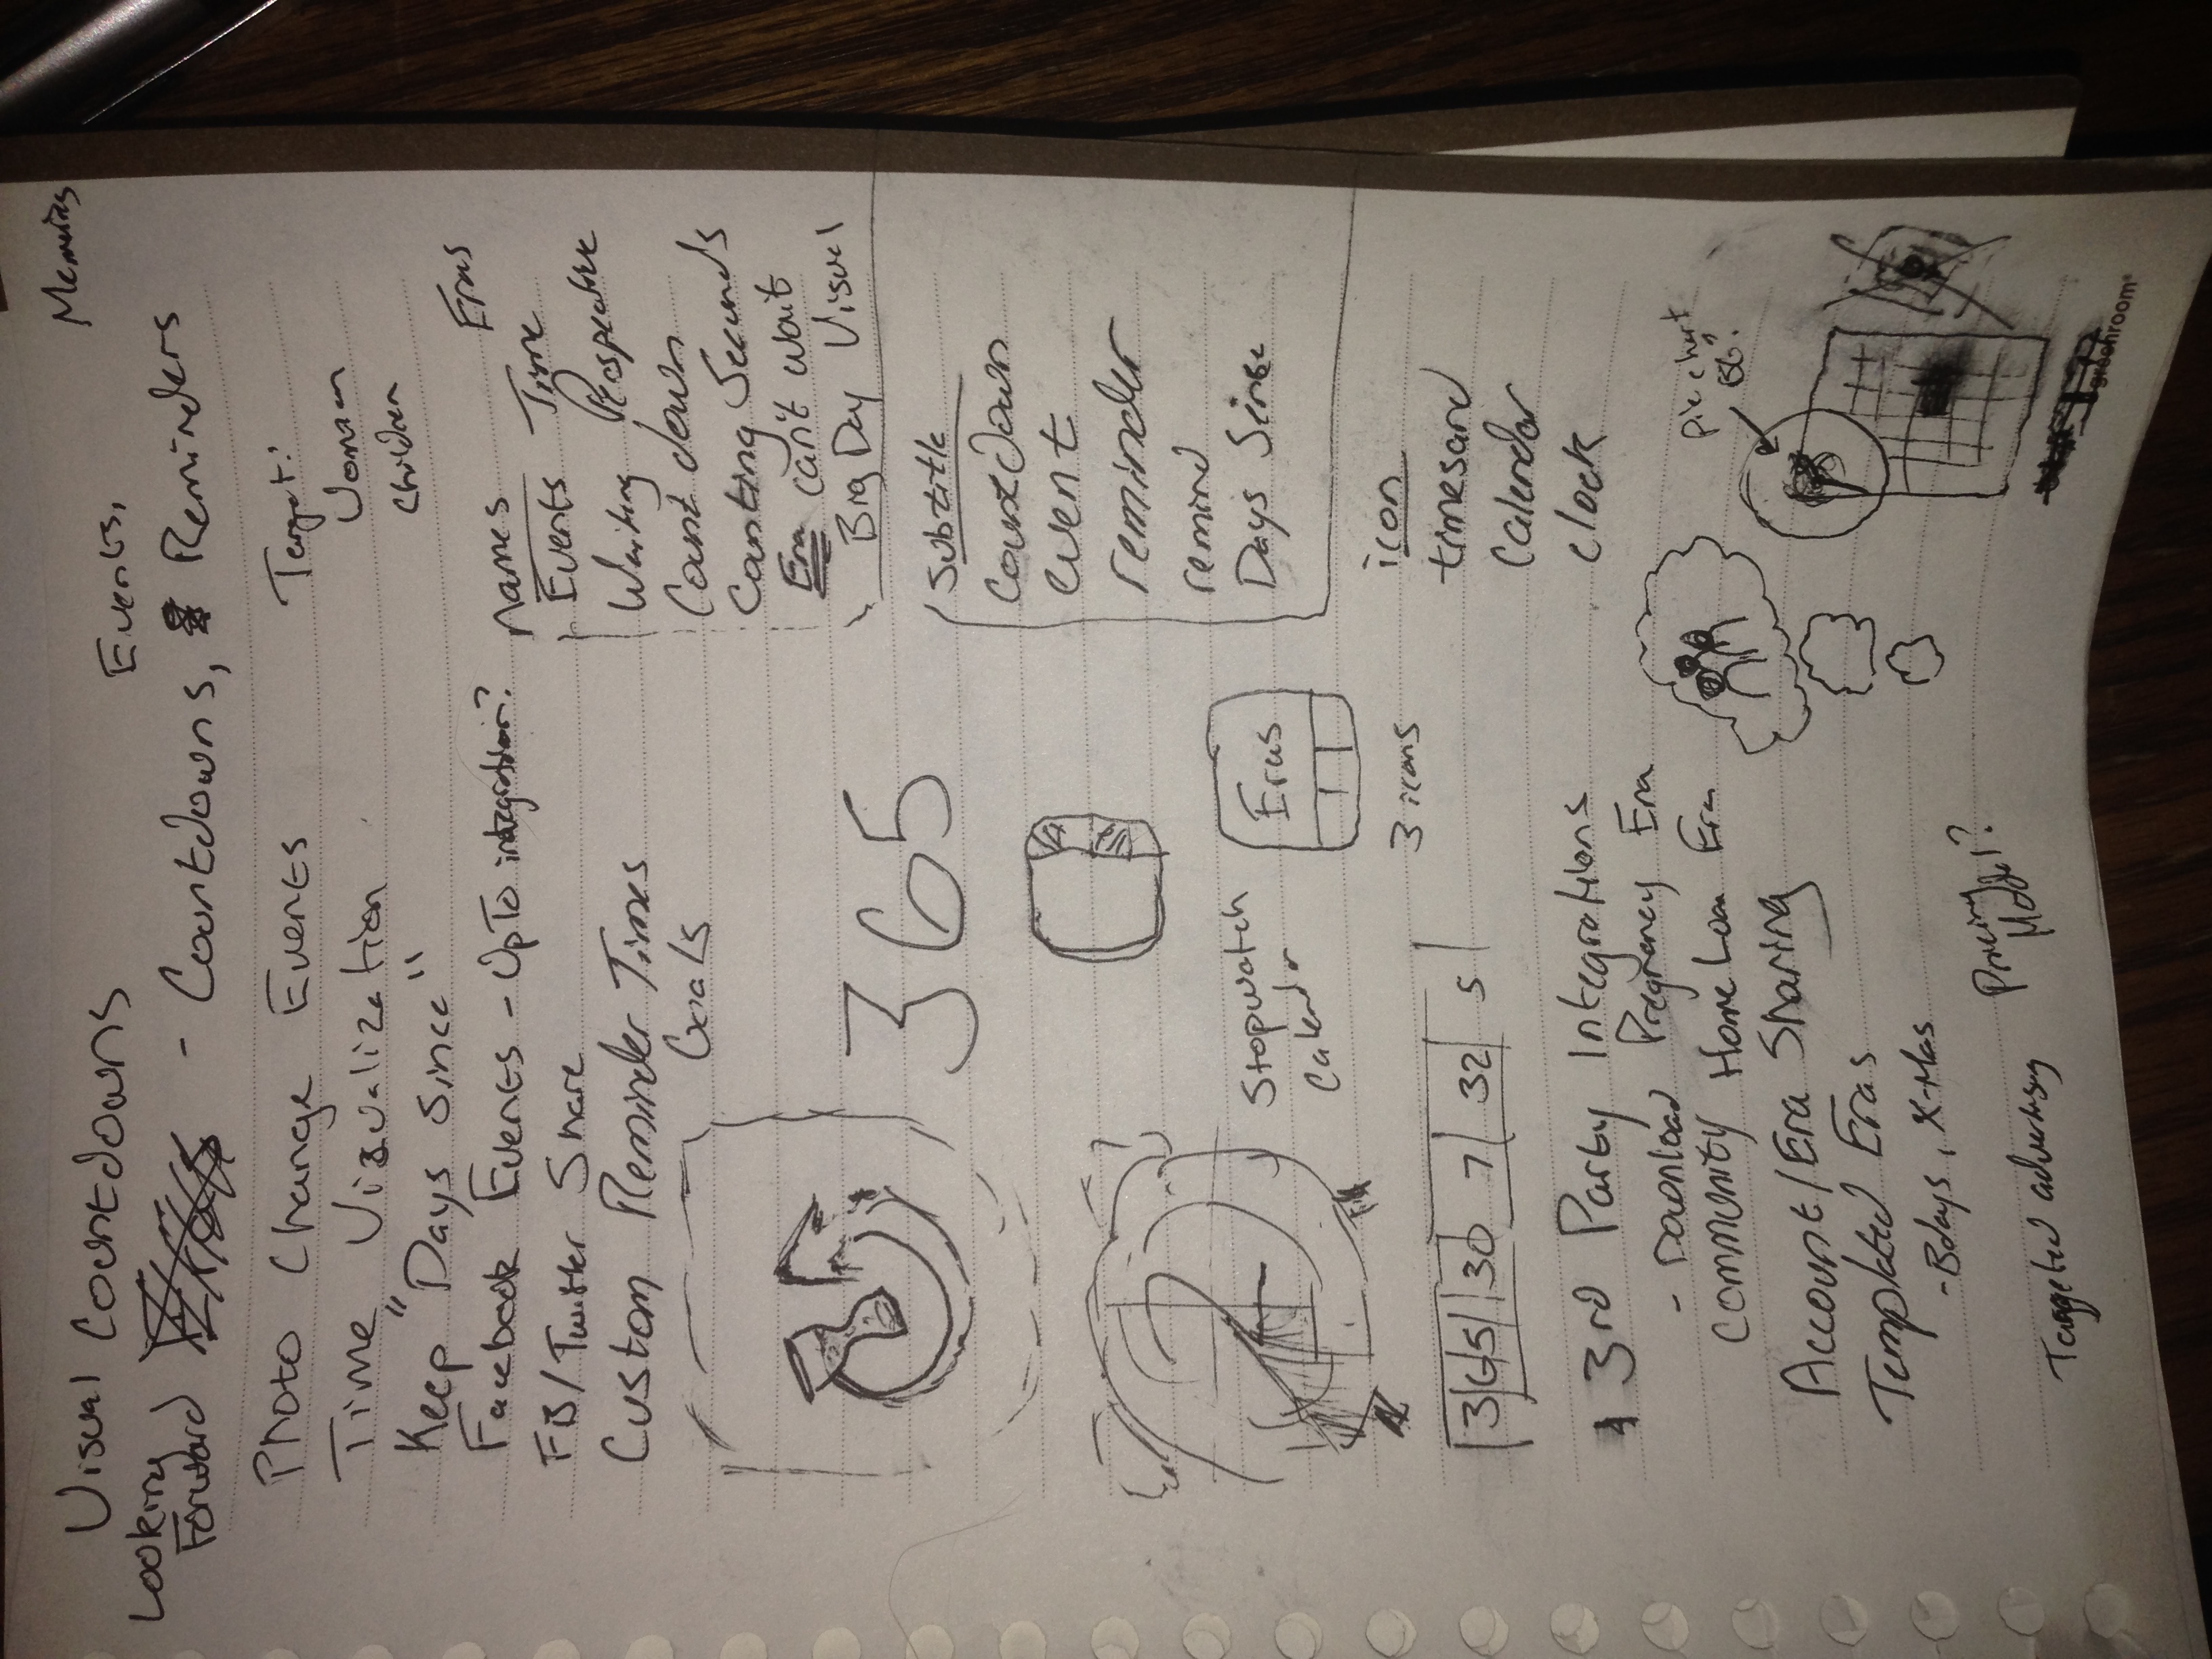 Memories
Visual Countdowns
Events,
Looking
Forward - Countdowns, Reminders
Photo Change Events
Target:
Women
Children
Time Visualization
Keep "Days Since"
Facebook Events - UpTo integration?
FB/Twitter Share
Custom Reminder Times
Goals
names
Eras
Events Time
Waiting Perspective
Count down
Counting Seconds
Era can't wait
Big Day Visual
365
Subtitle
Countdown
event
reminder
remind
Days Since
2
Stopwatch
Calendar
Eras
3 icons
icon
timesand
Calendar
clock
365 30 7 32 5
3rd Party Integrations
- Download Pregnancy Era
Community Home Loan Era
Account/Era Sharing
Templated Eras
- Bdays, X-Mas
Pie chart
BG?
Targeted advertising
Pricing
Model?
greenroom